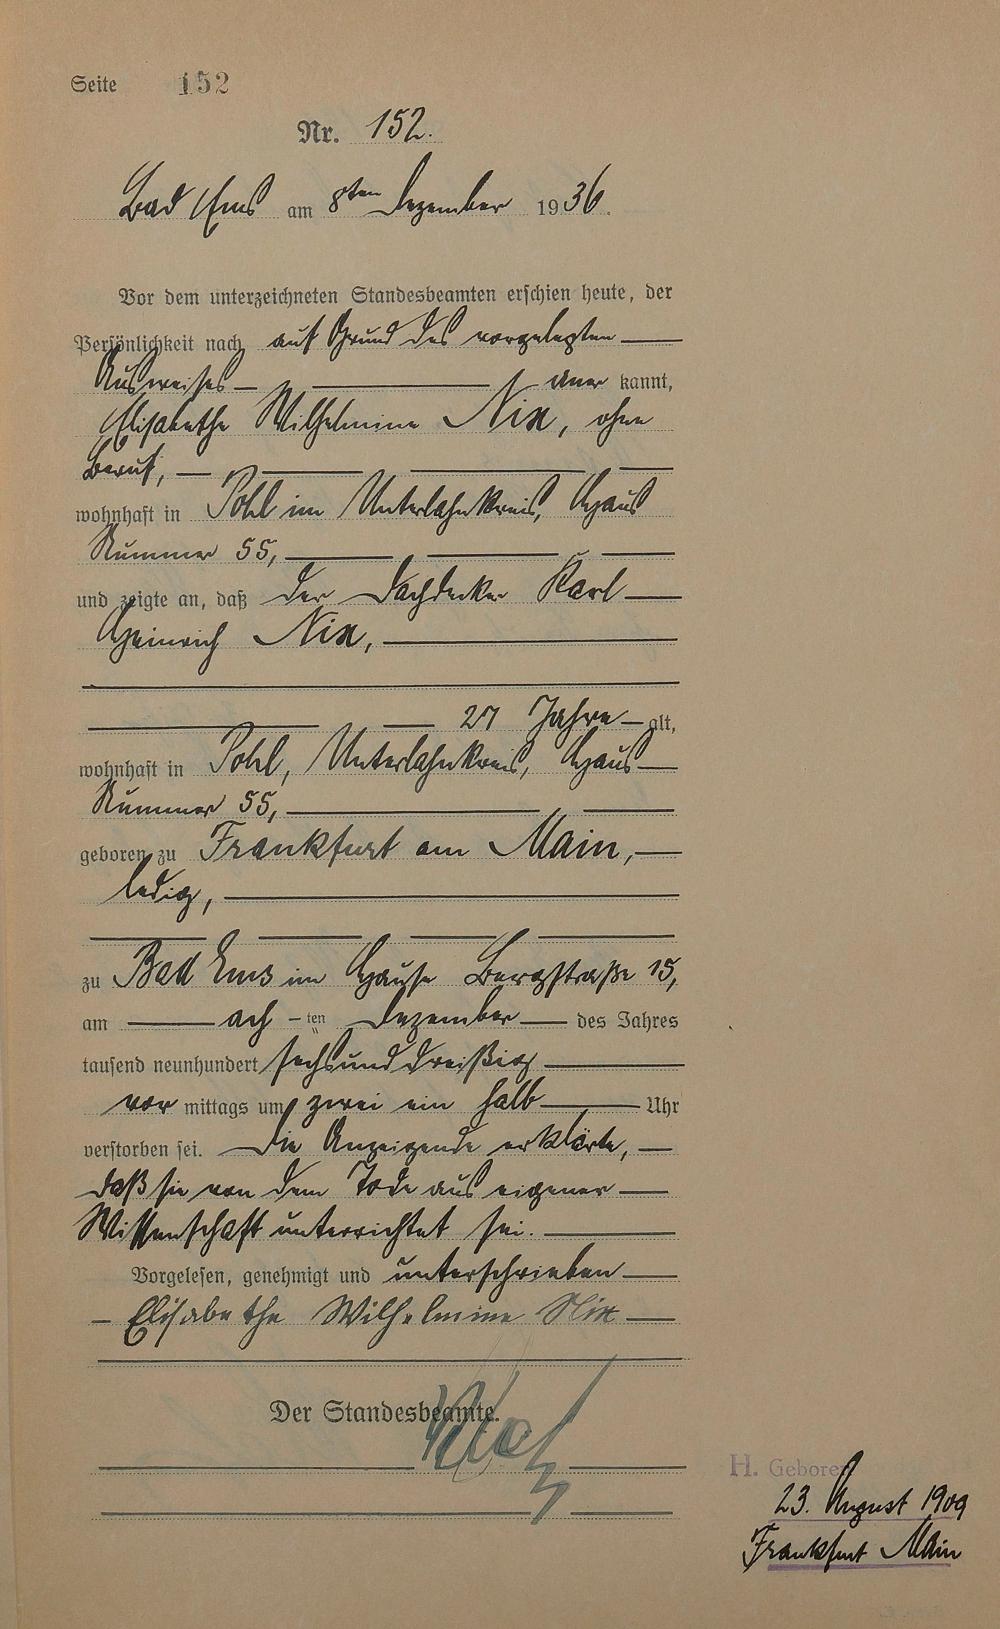 Seite 152
Nr. 152.
Bad Ems am 8ten Dezember 1936.
Vor dem unterzeichneten Standesbeamten erschien heute, der
Persönlichkeit nach auf Grund des vorgelegten
Ausweises aner kannt,
Elisabethe Wilhelmine Nix, ohne
Beruf,
wohnhaft in Pohl im Unterlahnkreis, Haus
Nummer 55,
und zeigte an, daß der Dachdecker Karl
Heinrich Nix,
27 Jahre alt,
wohnhaft in Pohl, Unterlahnkreis, Haus
Nummer 55,
geboren zu Frankfurt am Main,
ledig,
zu Bad Ems im Hause Bergstraße 15,
am ach-ten Dezember des Jahres
tausend neunhundert sechsunddreißig
vor mittags um zwei ein halb Uhr
verstorben sei. Die Anzeigende erklärte,
daß sie von dem Tode aus eigener
Wissenschaft unterrichtet sei.
Vorgelesen, genehmigt und unterschrieben
Elisabethe Wilhelmine Nix
Der Standesbeamte.
H. Geboren
23. August 1909
Frankfurt Main